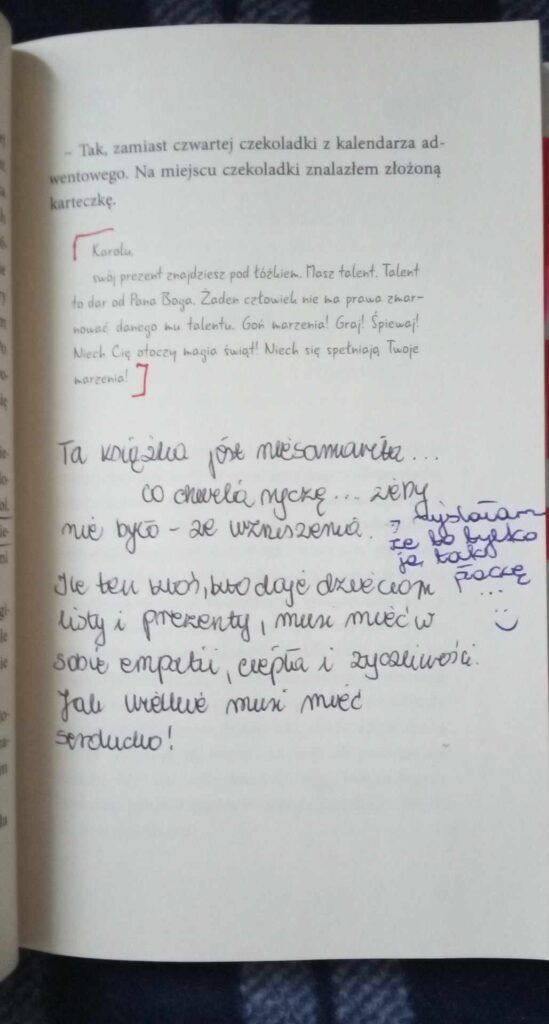 – Tak, zamiast czwartej czekoladki z kalendarza ad-
wentowego. Na miejscu czekoladki znalazłem złożoną
karteczkę.
Karolu,
swój prezent znajdziesz pod łóżkiem. Masz talent. Talent
to dar od Pana Boga. Żaden człowiek nie ma prawa zmar-
nować danego mu talentu. Goń marzenia! Graj! Śpiewaj!
Niech Cię otoczy magia świąt! Niech się spełniają Twoje
marzenia!
Ta książka jest niesamowita...
co chwela ryczę... żeby
nie było – ze wzruszenia.
? Myślałam
że to tylko
ja tak
płaczę
...
Ile ten ktoś, kto daje dzieciom
listy i prezenty, musi mieć w
sobie empatii, ciepła i życzliwości.
Jak wielkie musi mieć
serducho!